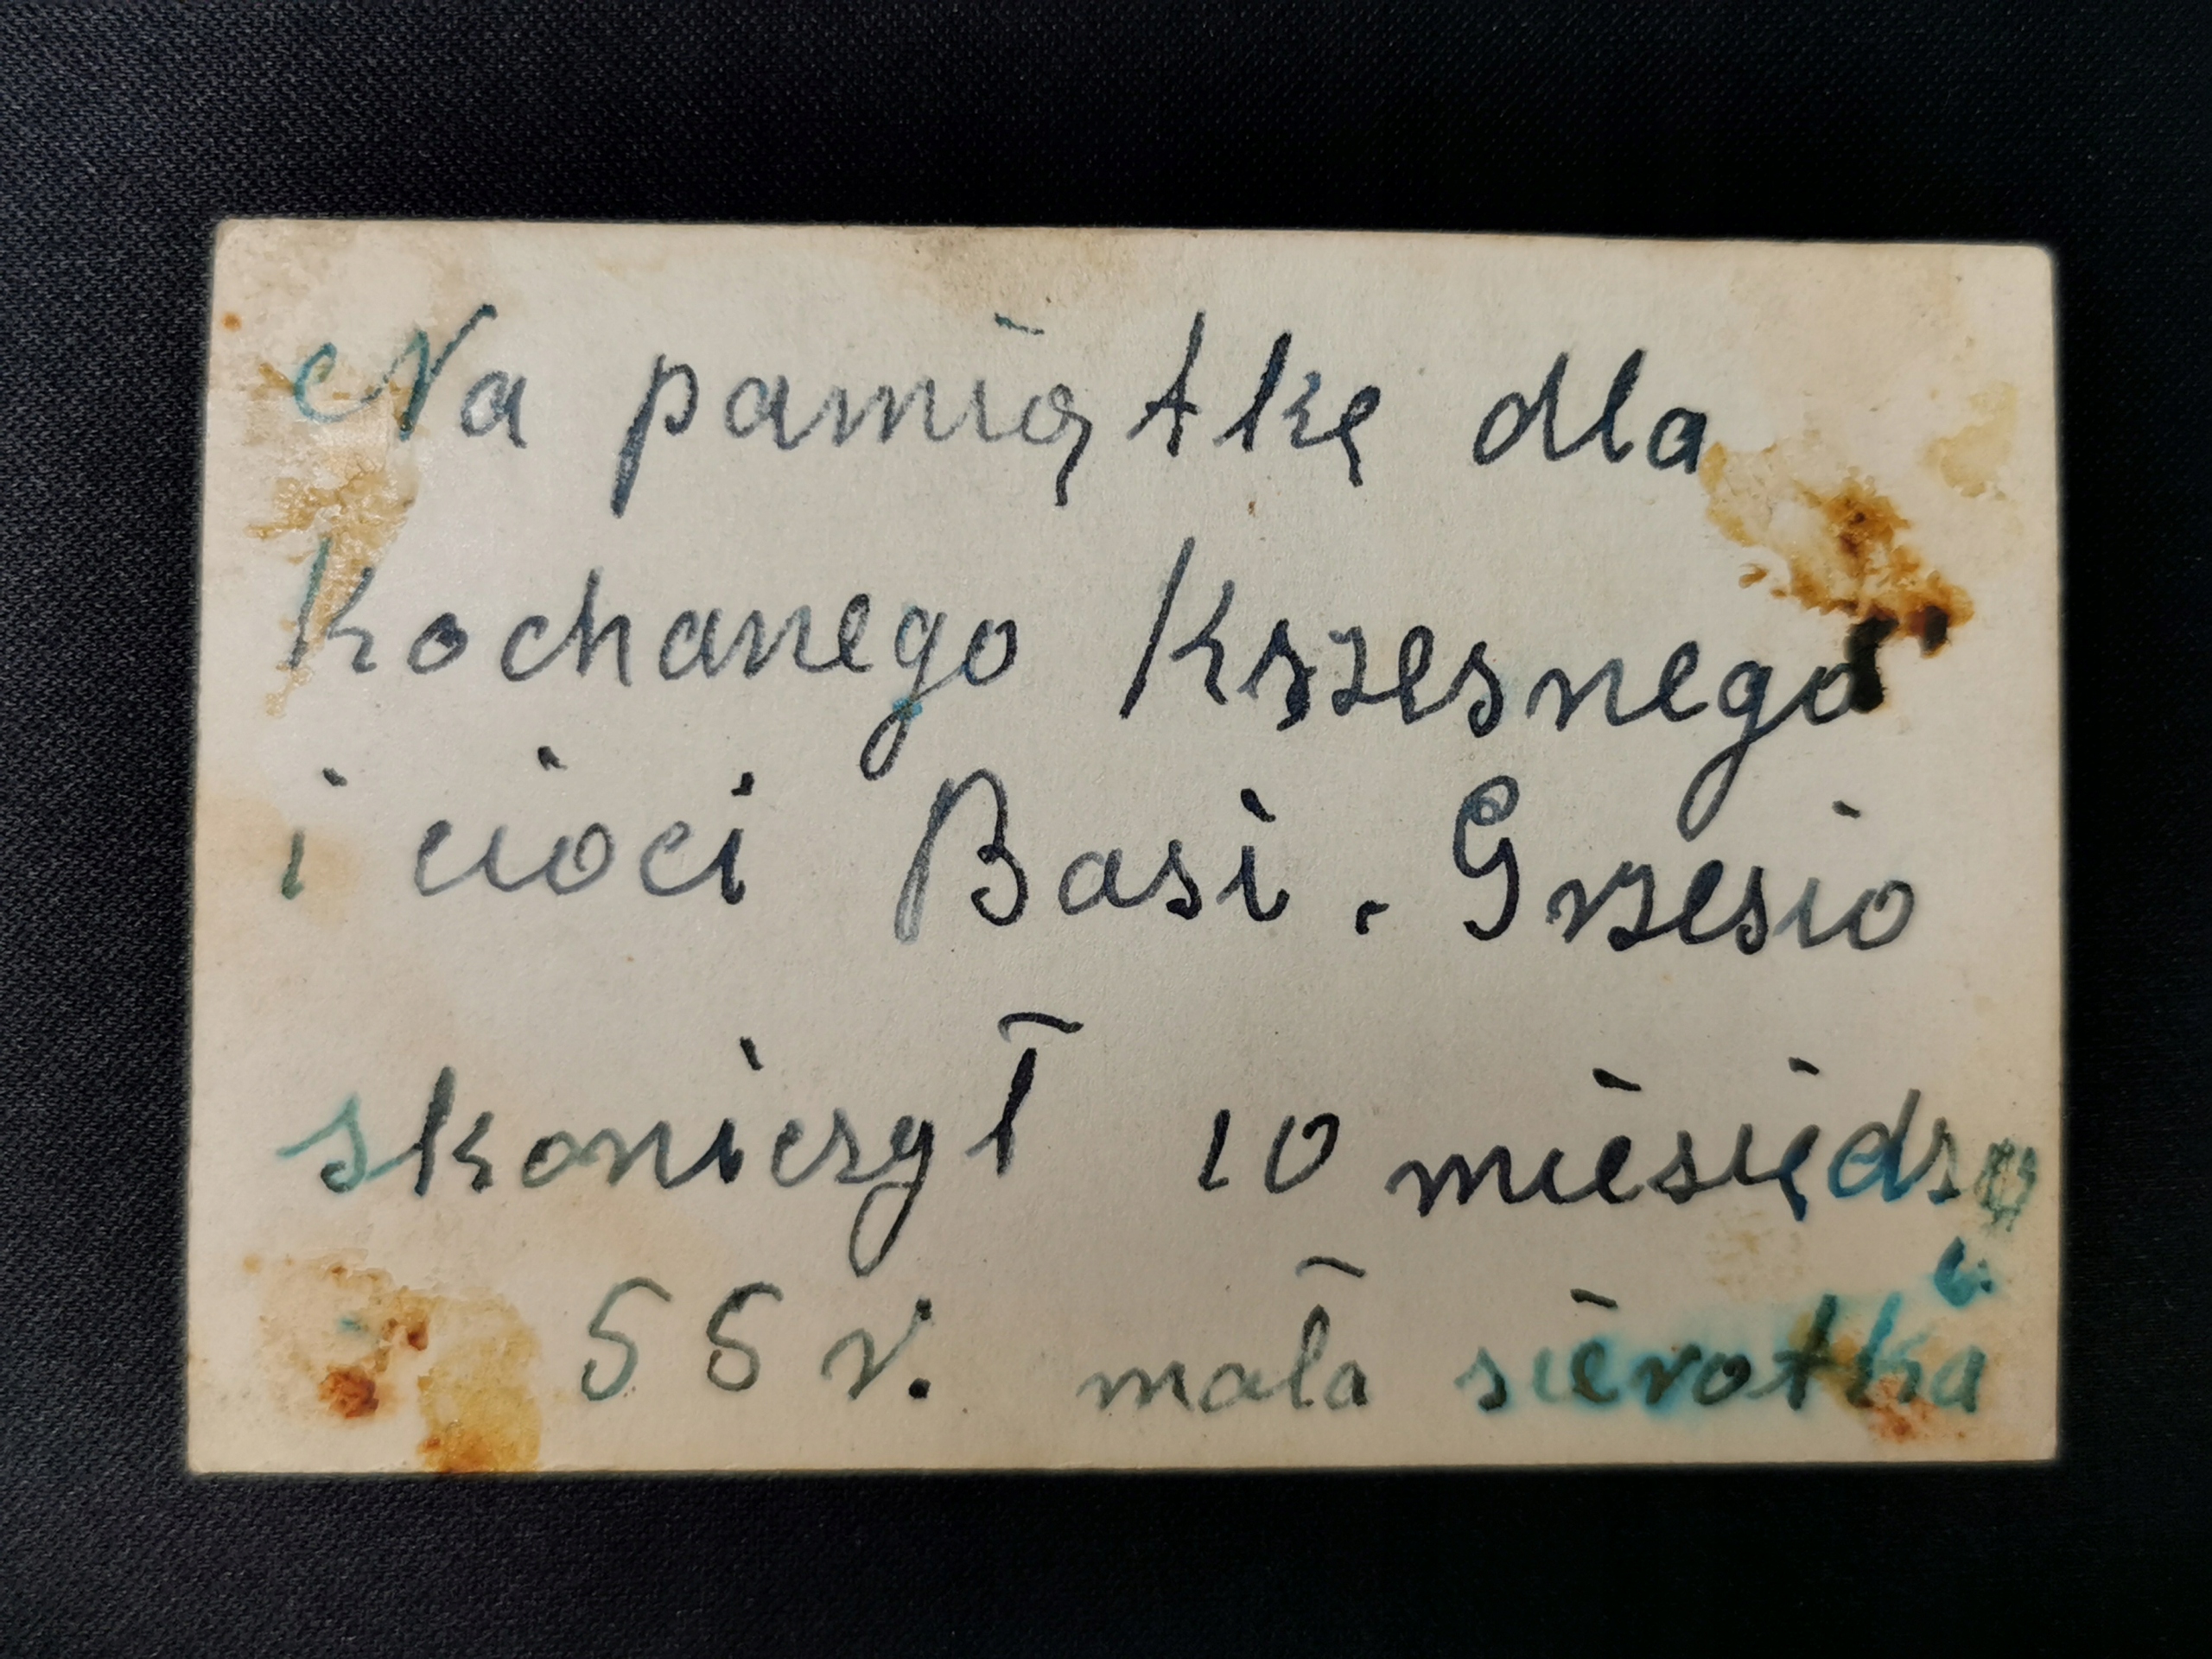 Na pamiątkę dla
Kochanego Kszesnego
i cioci Basi. Grzesio
skonieszył 10 miesiędzy
55 r. mała sierotka